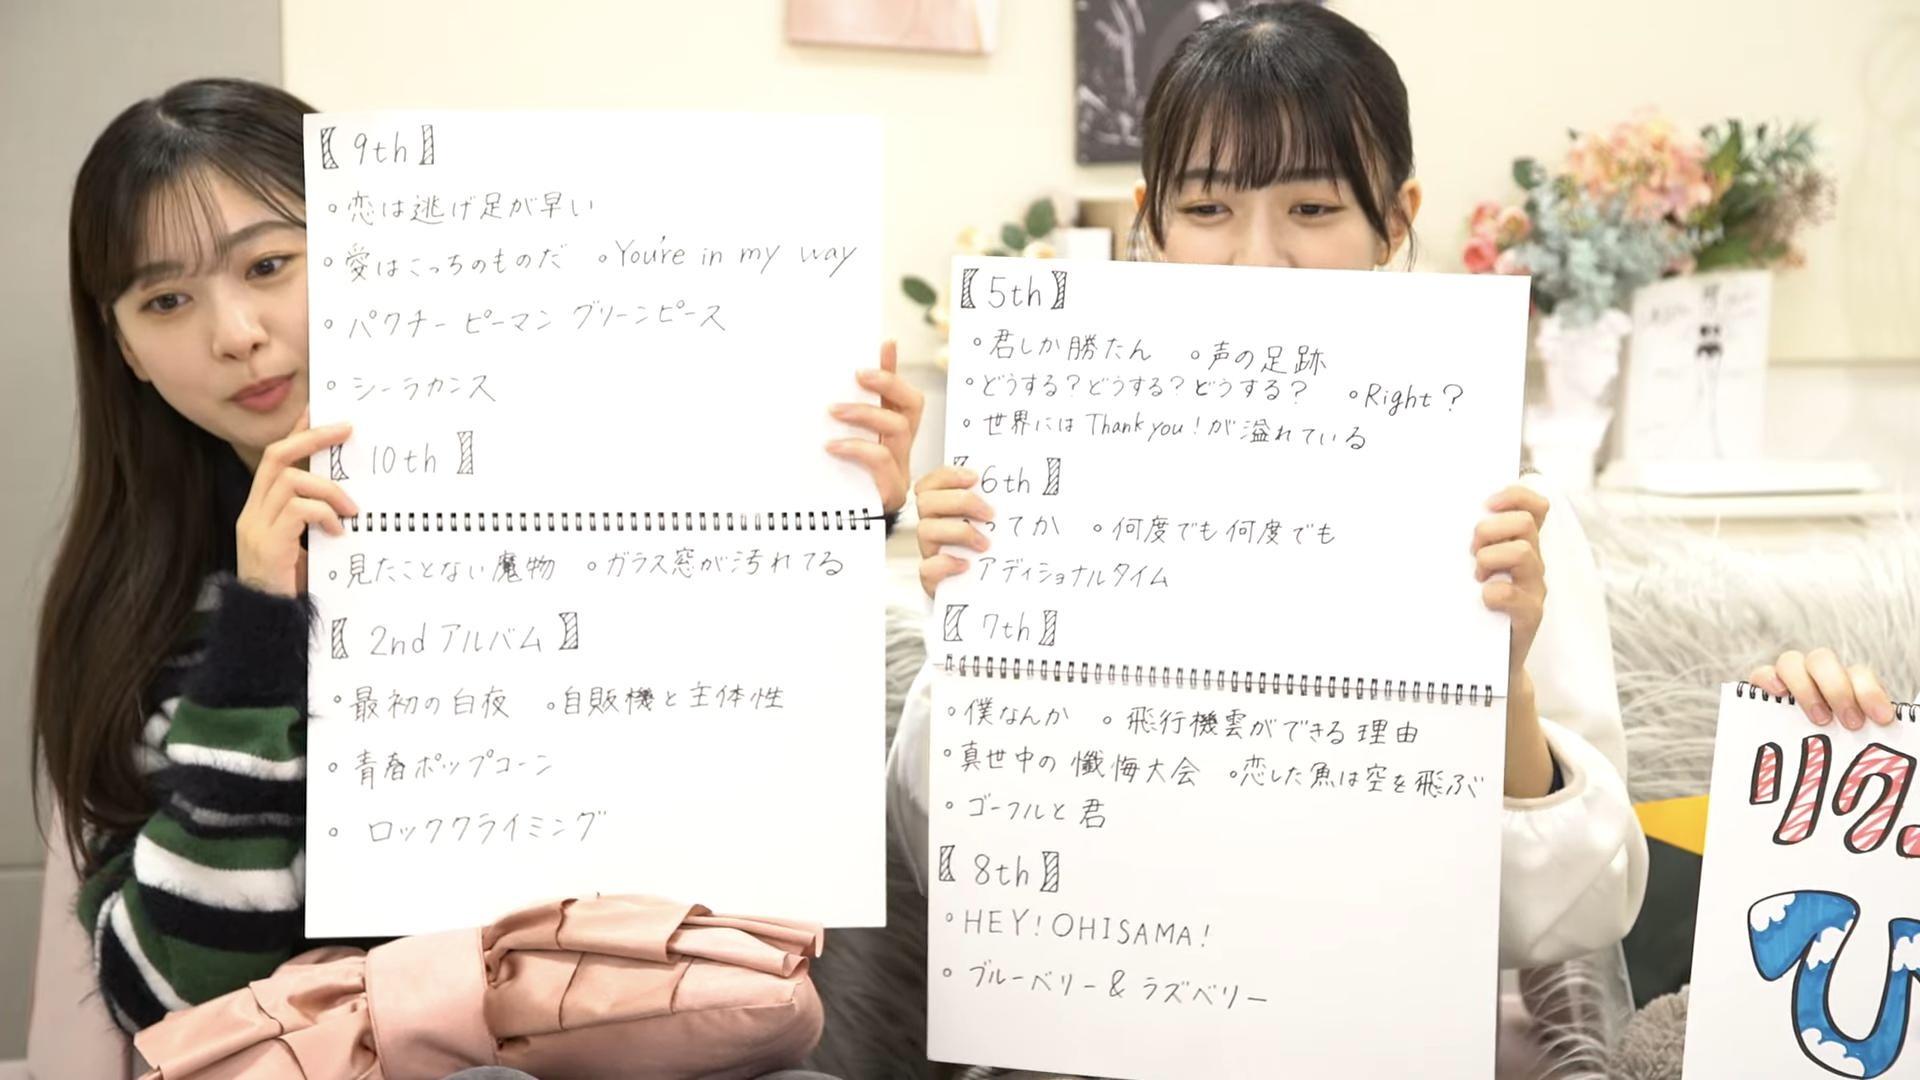 【9th】
◦恋は逃げ足が早い
◦愛はこっちのものだ ◦You're in my way
◦パクチー ピーマン グリーンピース
◦シーラカンス
【10th】
◦見たことない魔物 ◦ガラス窓が汚れてる
【2ndアルバム】
◦最初の白夜 ◦自販機と主体性
◦青春ポップコーン
◦ロッククライミング
【5th】
◦君しか勝たん ◦声の足跡
◦どうする?どうする?どうする? ◦Right?
◦世界にはThank you!が溢れている
【6th】
ってか ◦何度でも何度でも
アディショナルタイム
【7th】
◦僕なんか ◦飛行機雲ができる理由
◦真世中の懺悔大会 ◦恋した魚は空を飛ぶ
◦ゴーフルと君
【8th】
◦HEY!OHISAMA!
◦ブルーベリー&ラズベリー
リク
ひ